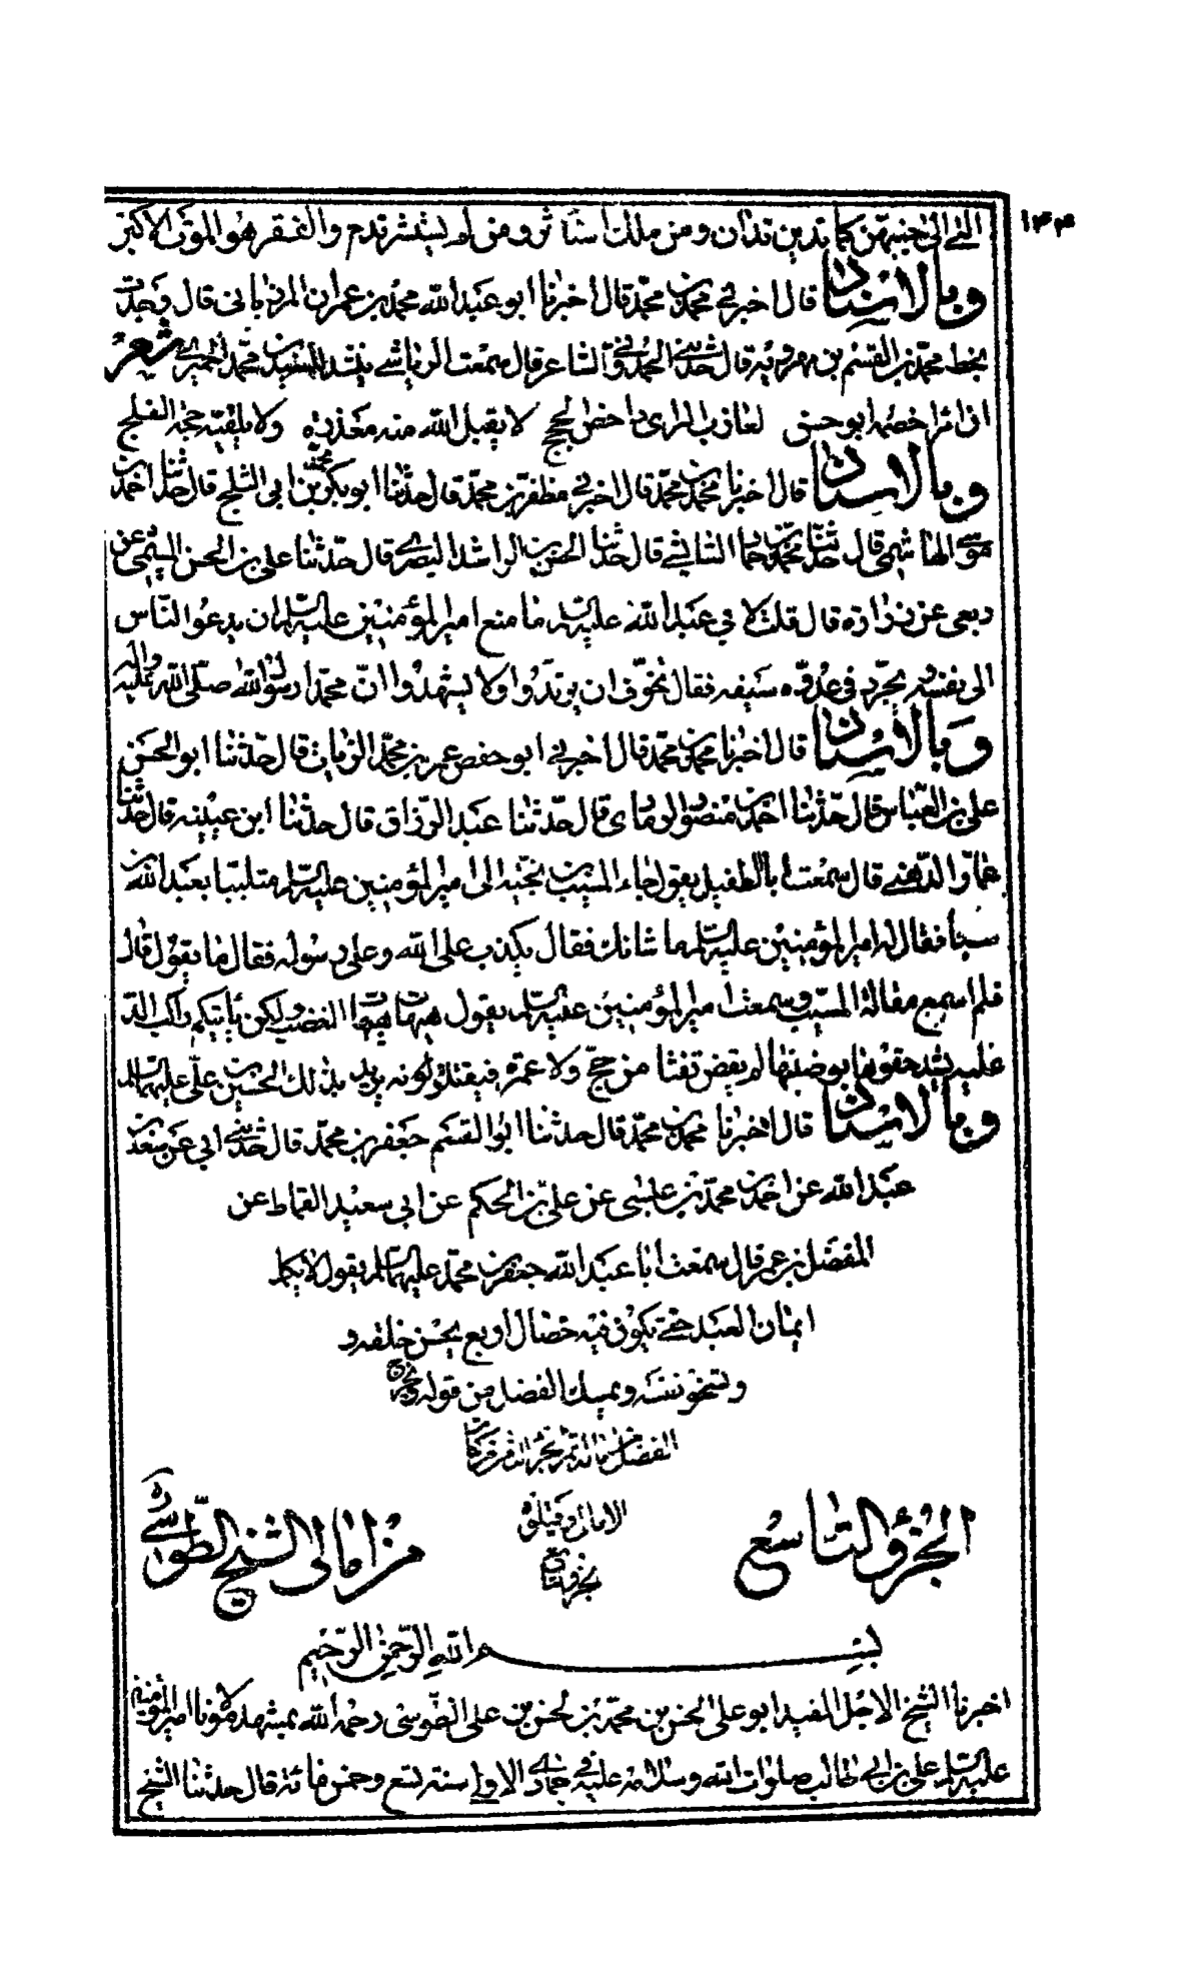 ١٤٤
التي الى جنبهن كما تدين تدان ومن ملك استأثر ومن لم يستشر يندم والفقر هو الموت الاكبر
وبالاسناد قال اخبرني محمد بن محمد قال اخبرنا ابو عبد الله محمد بن عمران المرزباني قال وجدت
بخط محمد بن القسم بن مهرويه قال حدثني الحمدوني الشاعر قال سمعت الرياشي ينشد للسيد بن محمد الحميري شعر
ان امرأ خصمه ابو حسن لعازب الرأي داحض الحجج لا يقبل الله منه معذرة ولا يلقيه حجة الفلج
وبالاسناد قال اخبرنا محمد بن محمد قال اخبرني مظفر بن محمد قال حدثنا ابو بكر محمد بن ابي الثلج قال حدثنا احمد بن
موسى الهاشمي قال حدثنا محمد بن حماد الشاشي قال حدثنا الحسن بن الراشد البصري قال حدثنا علي بن الحسن الميثمي عن
ربعي عن زرارة قال قلت لابي عبد الله عليه السلام ما منع امير المؤمنين عليه السلام ان يدعو الناس
الى نفسه ويجرد في عدوه سيفه فقال تخوف ان يرتدوا ولا يشهدوا ان محمدا رسول الله صلى الله عليه واله
وبالاسناد قال اخبرنا محمد بن محمد قال اخبرني ابو حفص عمر بن محمد الزيات قال حدثنا ابو الحسن
علي بن العباس قال حدثنا احمد بن منصور الرمادي قال حدثنا عبد الرزاق قال حدثنا ابن عيينه قال حدثنا
عمار الدهني قال سمعت ابا الطفيل يقول جاء المسيب بن نجبه الى امير المؤمنين عليه السلام متلببا بعبد الله بن
سبا فقال له امير المؤمنين عليه السلام ما شانك فقال يكذب على الله وعلى رسوله فقال ما يقول قال
فلم اسمع مقالة المسيب وسمعت امير المؤمنين عليه السلام يقول هيهات هيهات الغضب ولكن ياتيكم راكب الذ
علبه يشد حقوها بوضينها لم يقض تفثا من حج ولا عمرة فيقتلونه يريد بذلك الحسين بن علي عليهما السلام
وبالاسناد قال اخبرنا محمد بن محمد قال حدثنا ابو القسم جعفر بن محمد قال حدثني ابي عن سعد بن
عبد الله عن احمد بن محمد بن عيسى عن علي بن الحكم عن ابي سعيد القماط عن
المفضل بن عمر قال سمعت ابا عبد الله جعفر بن محمد عليهما السلام يقول لا يكمل
ايمان العبد حتى يكون فيه خصال اربع يحسن خلقه و
وتسخو نفسه ويمسك الفضل من قوله ويخرج
الفضل من ماله تم الجزء الثامن من كتاب
الامالي ويتلوه
الجزء التاسع
الجزء التاسع من امالي الشيخ الطوسي ره
بسم الله الرحمن الرحيم
اخبرنا الشيخ الاجل المفيد ابو علي الحسن بن محمد بن الحسن بن علي الطوسي رحمه الله بمشهد مولانا امير المؤمنين
عليه السلام علي بن ابي طالب صلوات الله وسلامه عليه في جمادي الاولى سنة تسع وخمس مائة قال حدثنا الشيخ